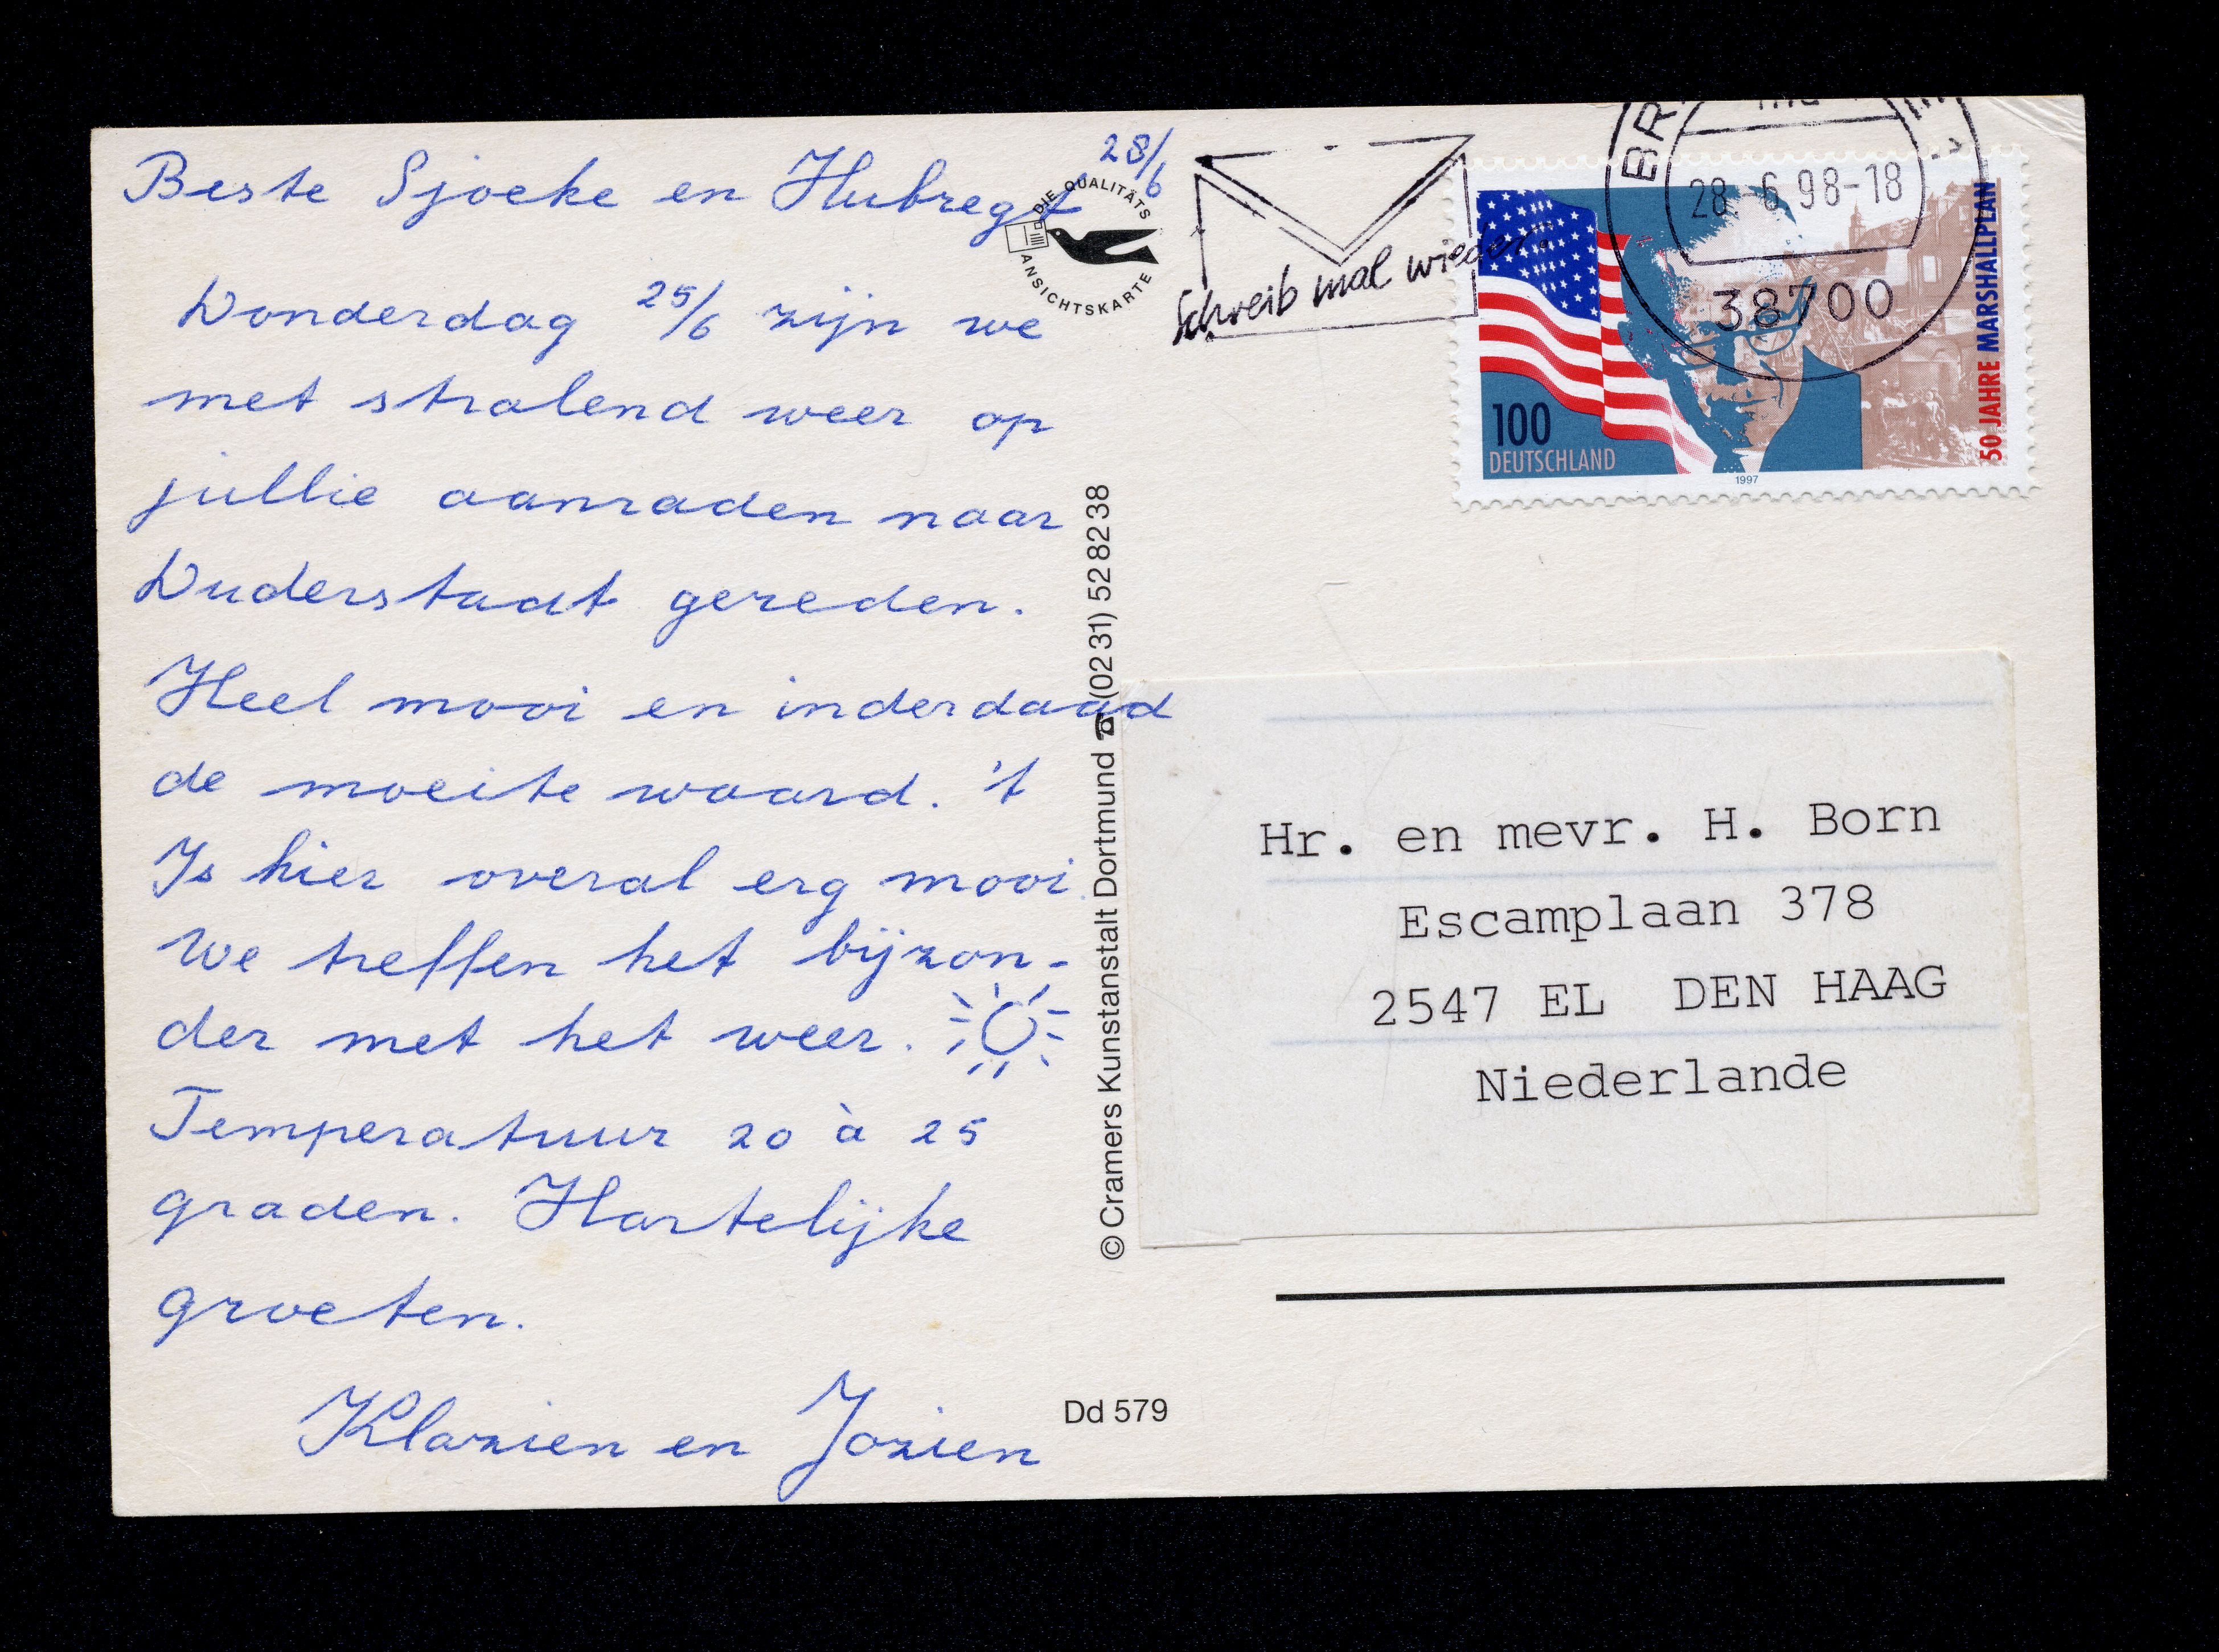 28/6
Beste Sjoeke en Hubregt
Donderdag 25/6 zijn we
met stralend weer op
jullie aanraden naar
Duderstadt gereden.
Heel mooi en inderdaad
de moeite waard. 't
Is hier overal erg mooi.
We treffen het bijzon-
der met het weer.
Temperatuur 20 à 25
graden. Hartelijke
groeten.
Klazien en Jozien
DIE QUALITÄTS
ANSICHTSKARTE
© Cramers Kunstanstalt Dortmund ☎ (02 31) 52 82 38
Dd 579
Schreib mal wieder
BR
28. 6 98-18
38700
100
DEUTSCHLAND
1997
50 JAHRE MARSHALLPLAN
Hr. en mevr. H. Born
Escamplaan 378
2547 EL DEN HAAG
Niederlande